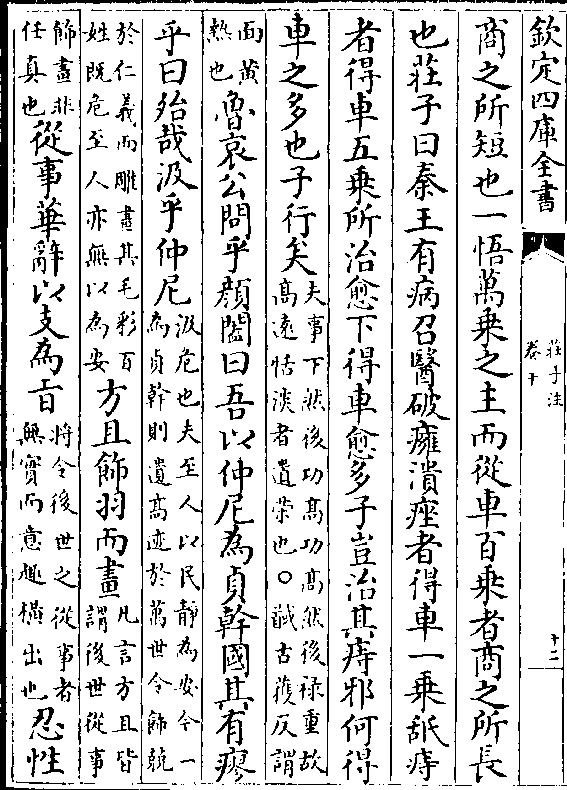 欽定四庫全書
莊子注
卷十
十二
商之所短也一悟萬乘之主而從車百乘者商之所長
也莊子曰秦王有病召醫破癰潰痤者得車一乘舐痔
者得車五乘所治愈下得車愈多子豈治其痔邪何得
車之多也子行矣
夫事下然後功髙功髙然後禄重故
髙遠恬淡者遺榮也○馘古獲反謂
面黄
熱也
魯哀公問乎顔闔曰吾以仲尼為貞幹國其有瘳
乎曰殆哉汲乎仲尼
汲危也夫至人以民靜為安今一
為貞幹則遺髙迹於萬世令飾競
於仁義而雕畫其毛彩百
姓既危至人亦無以為安
方且飾羽而畫
凡言方且皆
謂後世從事
飾畫非
任真也
從事華辭以支為㫖
將令後世之從事者
無實而意趣横出也
忍性